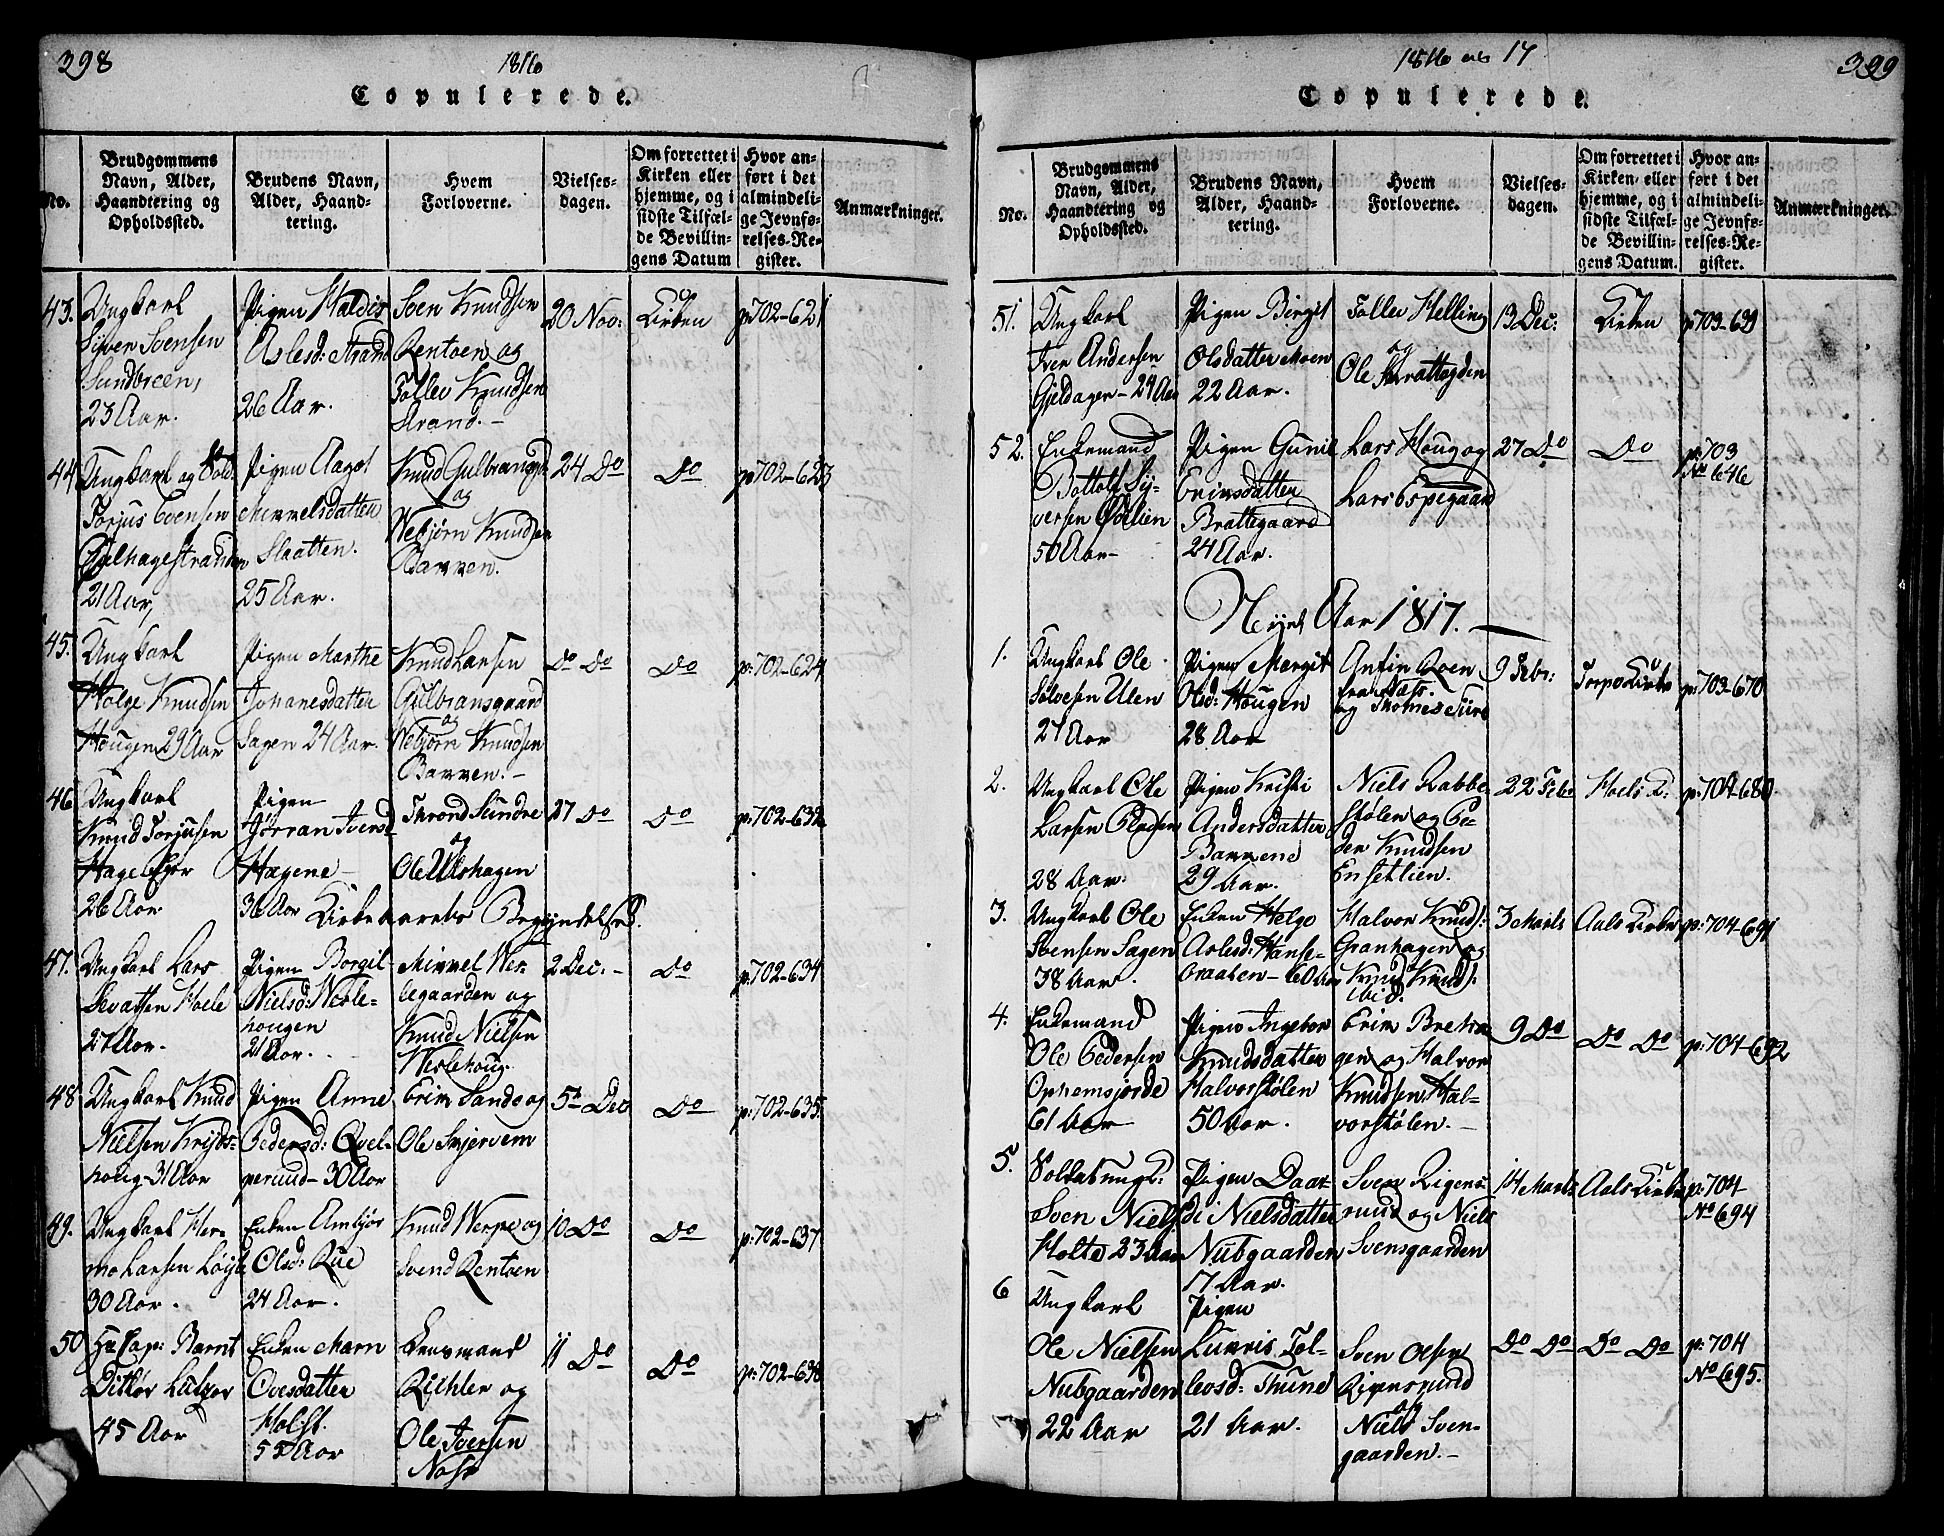 398
1816
Copulerede.
No.
Brudgommens Navn, Alder, Haandtering og Opholdssted.
Brudens Navn, Alder, Haandtering.
Hvem Forloverne.
Vielses-dagen.
Om forrettet i Kirken eller hjemme, og i sidste Tilfælde Bevillingens Datum
Hvor anført i det almindelige Jevnførelses-Register.
Anmærkninger.
43.
Ungkarl
Siver Svensen
Sundbreen,
23 Aar.
Pigen Haldis
Aslesd: Strand
26 Aar.
Sven Knudsen
Rentoen og
Tollev Knudsen
Strand.-
20 Nov:
Kirken
p:702-621
44
Ungkarl og Sold.
Torjus Evensen
21 Aar,
Pigen Aagot
Mikkelsdatter
Slaatten.
25 Aar.
Knud Gulbransgd
og
Webjørn Knudsen
Bakken.
24 Do
Do
p:702-623
45.
Ungkarl
Holge Knudsen
Hougen 29 Aar
Pigen Marthe
Johanesdatter
Sagen 24 Aar.
Knud Larsen
Gulbransgaard
og
Webjørn Knudsen
Bakken.-
Do Do
Do
p:702-624
46
Ungkarl
Knud Torjusen
Hagel Eger
26 Aar
Pigen
Jørran Iversd
Hagene
36 Aar
Thrond Sundre
og
Ole Ulshagen
27 Do
Do
p:702-632
Kirkeaarets Begyndelse.
47.
Ungkarl Lars
Sevatsen Hoele
27 Aar.
Pigen Borgil
Nielsd: Werle-
hougen
21 Aar.
Mikkel Wer-
legaarden og
Knud Nielsen
Werlehoug.
2 Dec:
Do
p:702-634
48
Ungkarl Knud
Nielsen Kryds-
holig 31 Aar
Pigen Anne
Pedersd: Qvel-
perud- 30 Aar
Erik Sando og
Ole Skjervem
5te Dec
Do
p:702-635
49.
Ungkarl Her-
mo Larsen Løyte
30 Aar.
Enken Ambjør
Olsd: Rue
24 Aar.
Knud Werpe og
Svend Rentoen
10 Do
Do
p:702-637
50
Hr Cap: Barnt
Ditlev Lutzov
45 Aar
Enken Marn
Ovesdatter
Holst.
55 Aar
Lensmand
Richler og
Ole Iversen
Næss
11 Do
Do
p:702-638
1816 og 17
399
Copulerede.
No.
Brudgommens Navn, Alder, Haandtering og Opholdssted.
Brudens Navn, Alder, Haandtering.
Hvem Forloverne.
Vielses-dagen.
Om forrettet i Kirken eller hjemme, og i sidste Tilfælde Bevillingens Datum.
Hvor anført i det almindelige Jevnførelses-Register.
Anmærkninger.
51.
Ungkarl
Iver Andersen
Gjeldager- 24 Aar
Pigen Birgit
Olsdatter Moen
22 Aar.
Tollev Helling
og
Ole Skrattegden
13 Dec:
Kirken
p:703-639
52.
Enkemand
Bottolf Sy-
versen Ødelien
50 Aar-
Pigen Gunil
Eriksdatter
Brattegaard
24 Aar.
Lars Houg og
Lars Espegaard
27 Do
Do
p:703
No 646
Nyt Aar 1817.
1.
Ungkarl Ole
Sølvesen Ulen
27 Aar
Pigen Margit
Olsd: Hougen
28 Aar
Anfin Roen
og Thomes Ture
9 Febr:
Torpo Kirke
p:703-670
2.
Ungkarl Ole
Larsen
28 Aar.
Pigen Kristi
Andersdatter
Bakkene
29 Aar.
Niels Rabbe-
stølen og Pe-
der Knudsen
Ensetlien.
22 Febr
Hoels K:
p:704-680
3.
Ungkarl Ole
Svensen Sagen
38 Aar.
Enken Helge
Aslesd: Hanse-
braaten- 60 Aar
Halvor Knuds:
Granhagen og
Knud Knuds:
ibid.
3 Marts
Aals Kirke
p:704-691
4.
Enkemand
Ole Pedersen
Ophemsjorde
61 Aar
Pigen Ingebor
Knudsdatter
Halvorstølen
50 Aar.
Erik Breha-
gen og Halvor
Knudsen Hal-
vorstølen.-
9 Do
Do Do
p:704-692
5.
Soldat Ungk:
Sven Niels
Holte 23 Aar
Pigen Daar-
di Nielsdatter
Nubgaarden
17 Aar.
Sven Rigens-
rud og Niels
Svensgaarden
14 Marts
Aals Kirke
p:704-
No 694
6
Ungkarl
Ole Nielsen
Nubgaarden
22 Aar
Pigen
Lukris Tol-
levsd: Thune
21 Aar.
Sven Olsen
Rigensrud
og
Niels Sven-
gaarden.-
Do Do
Do Do
p:704
No 695.